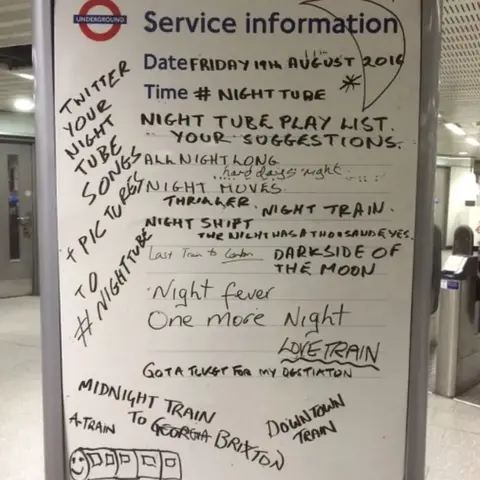 UNDERGROUND
Service information
Date FRIDAY 19th AUGUST 2016
Time # NIGHT TUBE
TWITTER
YOUR
NIGHT
TUBE
SONGS
+ PICTURES
TO
#NIGHTTUBE
NIGHT TUBE PLAY LIST.
YOUR SUGGESTIONS.
ALL NIGHT LONG
...hard days night.....
NIGHT MOVES.
THRILLER. NIGHT TRAIN.
NIGHT SHIFT
THE NIGHT HAS A THOUSAND EYES.
Last Train to London
DARKSIDE OF
THE MOON
Night fever
One more Night
LOVE TRAIN
GOT A TICKET FOR MY DESTIATON
MIDNIGHT TRAIN
TO GEORGIA BRIXTON
A-TRAIN
DOWNTOWN
TRAIN